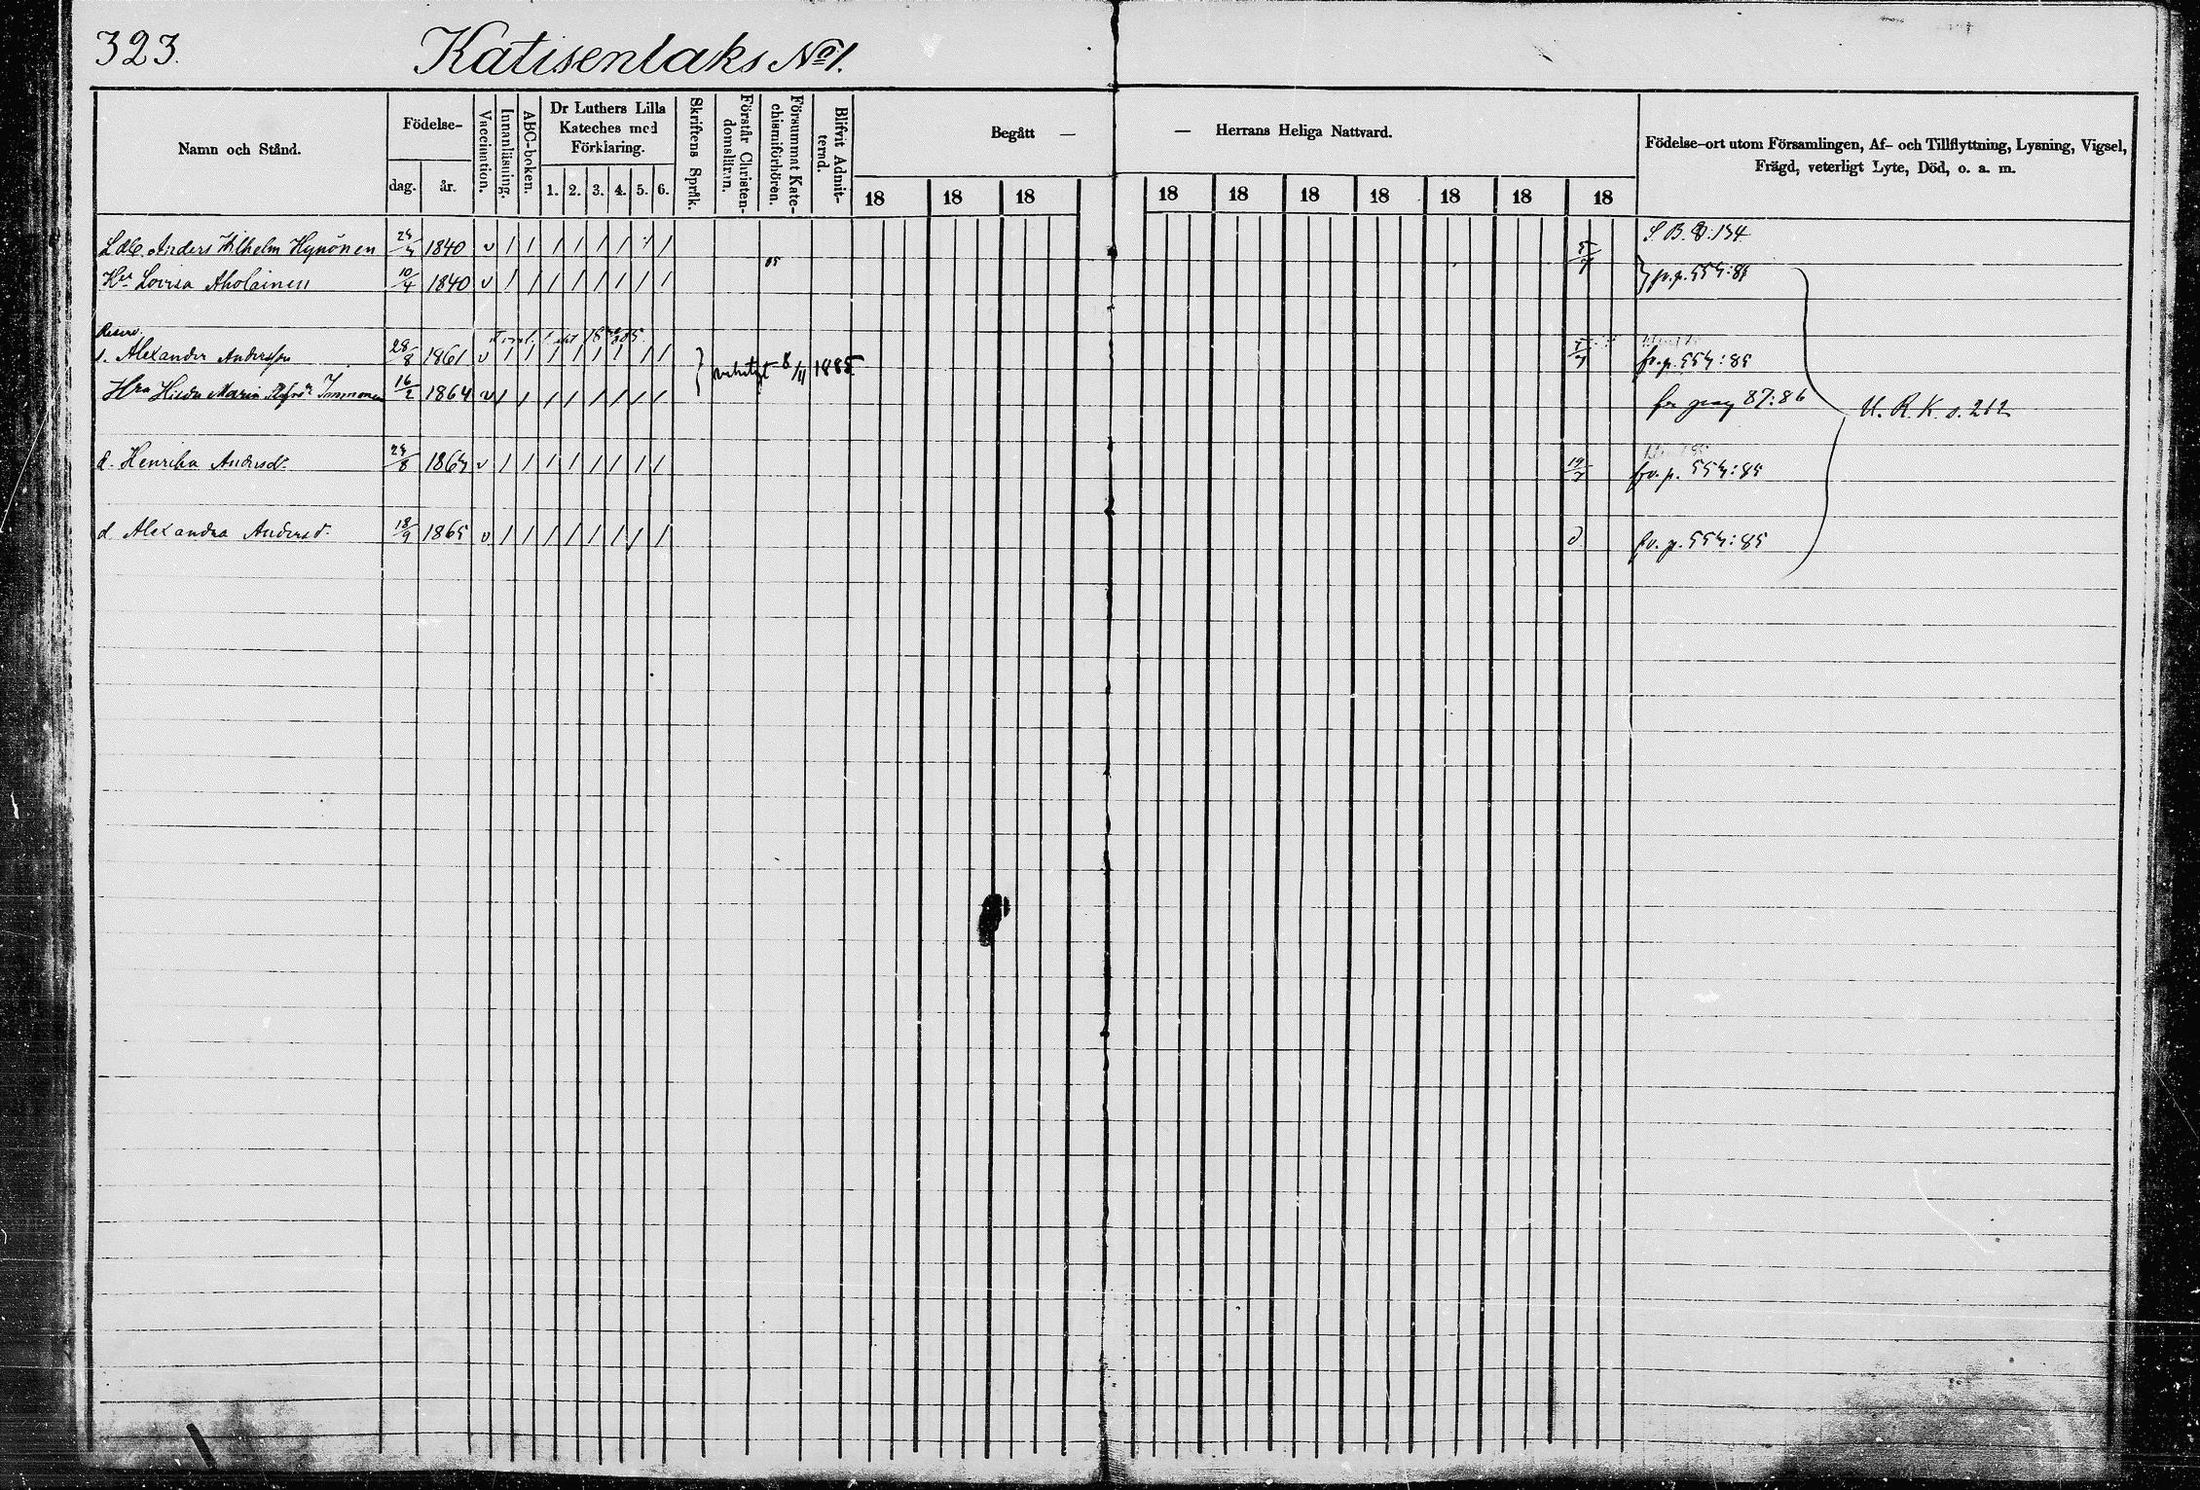 323.
Katisenlaks No 1.
Namn och Stånd.
Födelse-
dag.
år.
Vaccination.
Innanläsning.
ABC-boken.
Dr Luthers Lilla
Kateches med
Förklaring.
1. 2. 3. 4. 5. 6.
Skriftens Språk.
Förstår Christen-
domsläran.
Försummat Kate-
chismiförhören.
Blifvit Admit-
terad.
Begått —
— Herrans Heliga Nattvard.
18 18 18 18 18 18 18 18 18 18
Födelse-ort utom Församlingen, Af- och Tillflyttning, Lysning, Vigsel,
Frägd, veterligt Lyte, Död, o. a. m.
Anders Wilhelm Hynönen 1840 v / / / / / / / / S. B.
Lovisa Aholainen 10/4 1840 v / / / / / / / /
s. Alexander Andersson 28/8 1861 v / / / / / / / / fr. p. 554:85
Maria Immonen 16/2 1864 v / / / / / / / / 8/11 1885 87:86
U. R. K. s. 212
d. Henrika Andersdr 1864 v / / / / / / / / 19/7 fr. p. 554:85
d. Alexandra Andersdr 18/9 1865 v / / / / / / / / fr. p. 554:85